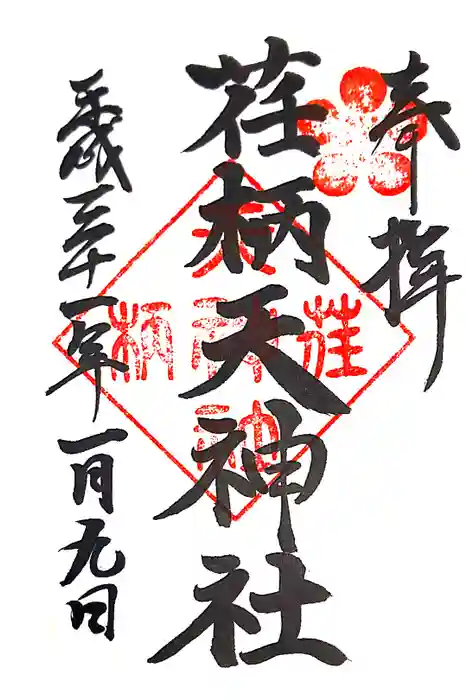 奉拝
荏柄天神社
平成三十一年一月九日